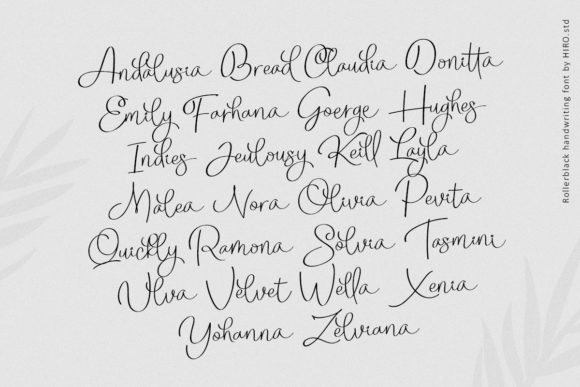 Andalusia Bread Claudia Donitta
Emily Farhana Goerge Hughes
Indies Jeulousy Keill Layla
Malea Nora Olivia Pevita
Quickly Ramona Solvia Tasmini
Ulva Velvet Wella Xenia
Yohanna Zelviana
Rollerblack handwriting font by HIRO.std